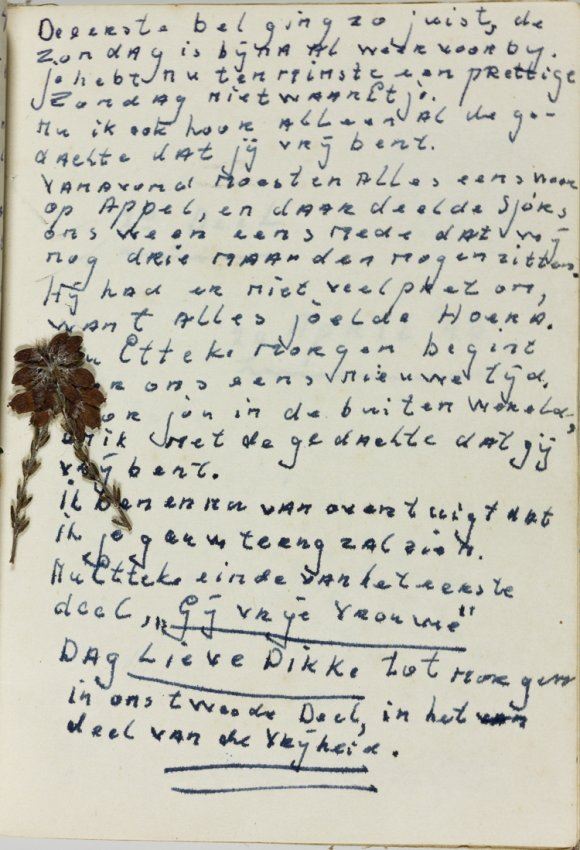 De eerste bel ging zo juist, de
zondag is bijna al weer voorby.
Je hebt nu tenminste een prettige
zondag niet waar Etje.
Nu ik ook hoor alleen al de ge-
dachte dat jij vrij bent.
Vanavond moesten alles eens weer
op Appel, en daar deelde Sjors
ons weer eens mede dat wij
nog drie maanden mogen zitten.
Hij had er niet veel pret om,
want alles joelde Hoera.
Etteke morgen begint
ons eens nieuwe tijd,
jou in de buiten wereld,
en ik met de gedachte dat gij
vrij bent.
Ik ben er nu van overtuigt dat
ik je gauw terug zal zien.
Nu Etteke einde van het eerste
deel, "Gij vrije Vrouwe"
Dag Lieve Dikke tot morgen
in ons tweede Deel, in het
deel van de Vrijheid.